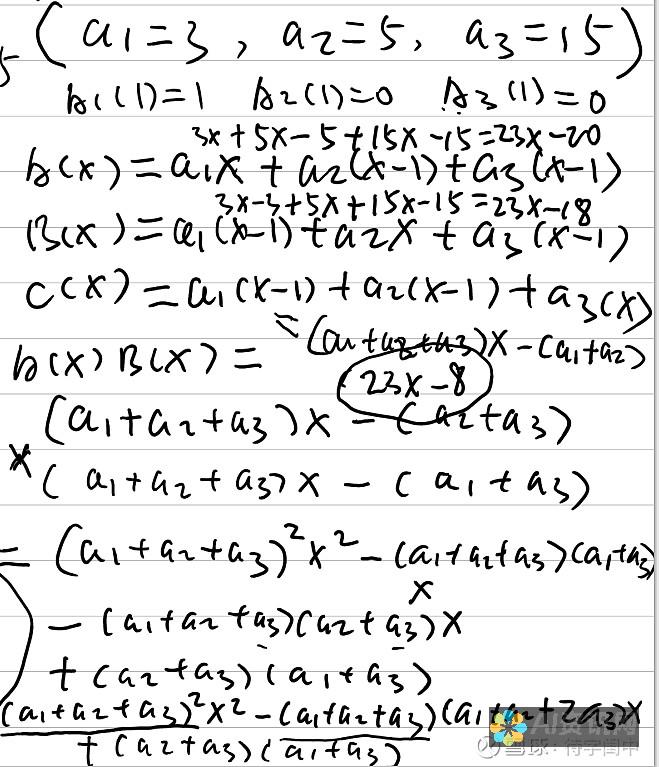 5 (a1=3, a2=5, a3=15)
A1(1)=1 A2(1)=0 A3(1)=0
3x+5x-5+15x-15=23x-20
A(x)=a1x+a2(x-1)+a3(x-1)
3x-3+5x+15x-15=23x-18
B(x)=a1(x-1)+a2x+a3(x-1)
C(x)=a1(x-1)+a2(x-1)+a3(x)
=(a1+a2+a3)x-(a1+a2)
A(x)B(x)=
23x-8
(a1+a2+a3)x-(a2+a3)
x(a1+a2+a3)x-(a1+a3)
=(a1+a2+a3)²x²-(a1+a2+a3)(a1+a3)
x
-(a1+a2+a3)(a2+a3)x
+(a2+a3)(a1+a3)
(a1+a2+a3)²x²-(a1+a2+a3)(a1+a2+2a3)x
+(a2+a3)(a1+a3)
雪球：待字闺中